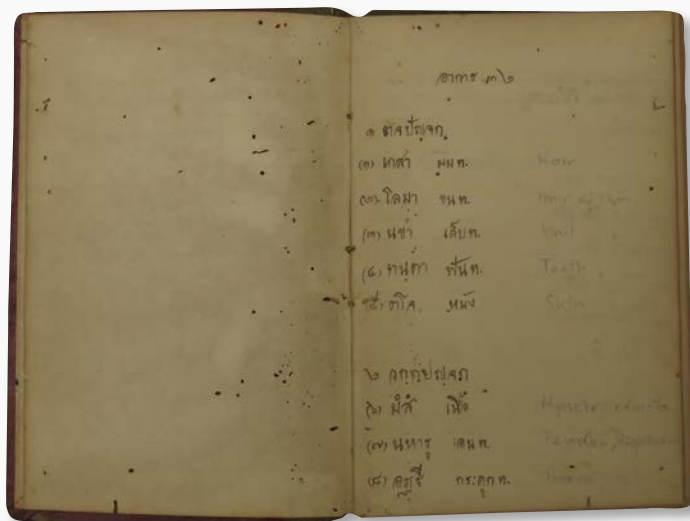 อาการ ๓๒
๑ ตจปัญจก
(๑) เกสา ผมท. Hair
(๒) โลมา ขนท. Hair of skin
(๓) นขา เล็บท. Nail
(๔) ทนฺตา ฟันท. Teeth
(๕) ตโจ หนัง Skin
๒ วกฺกปญฺจก
(๖) มํสํ เนื้อ Muscle
(๗) นหารู เอนท.
(๘) อฏฺฐิ กระดูกท.